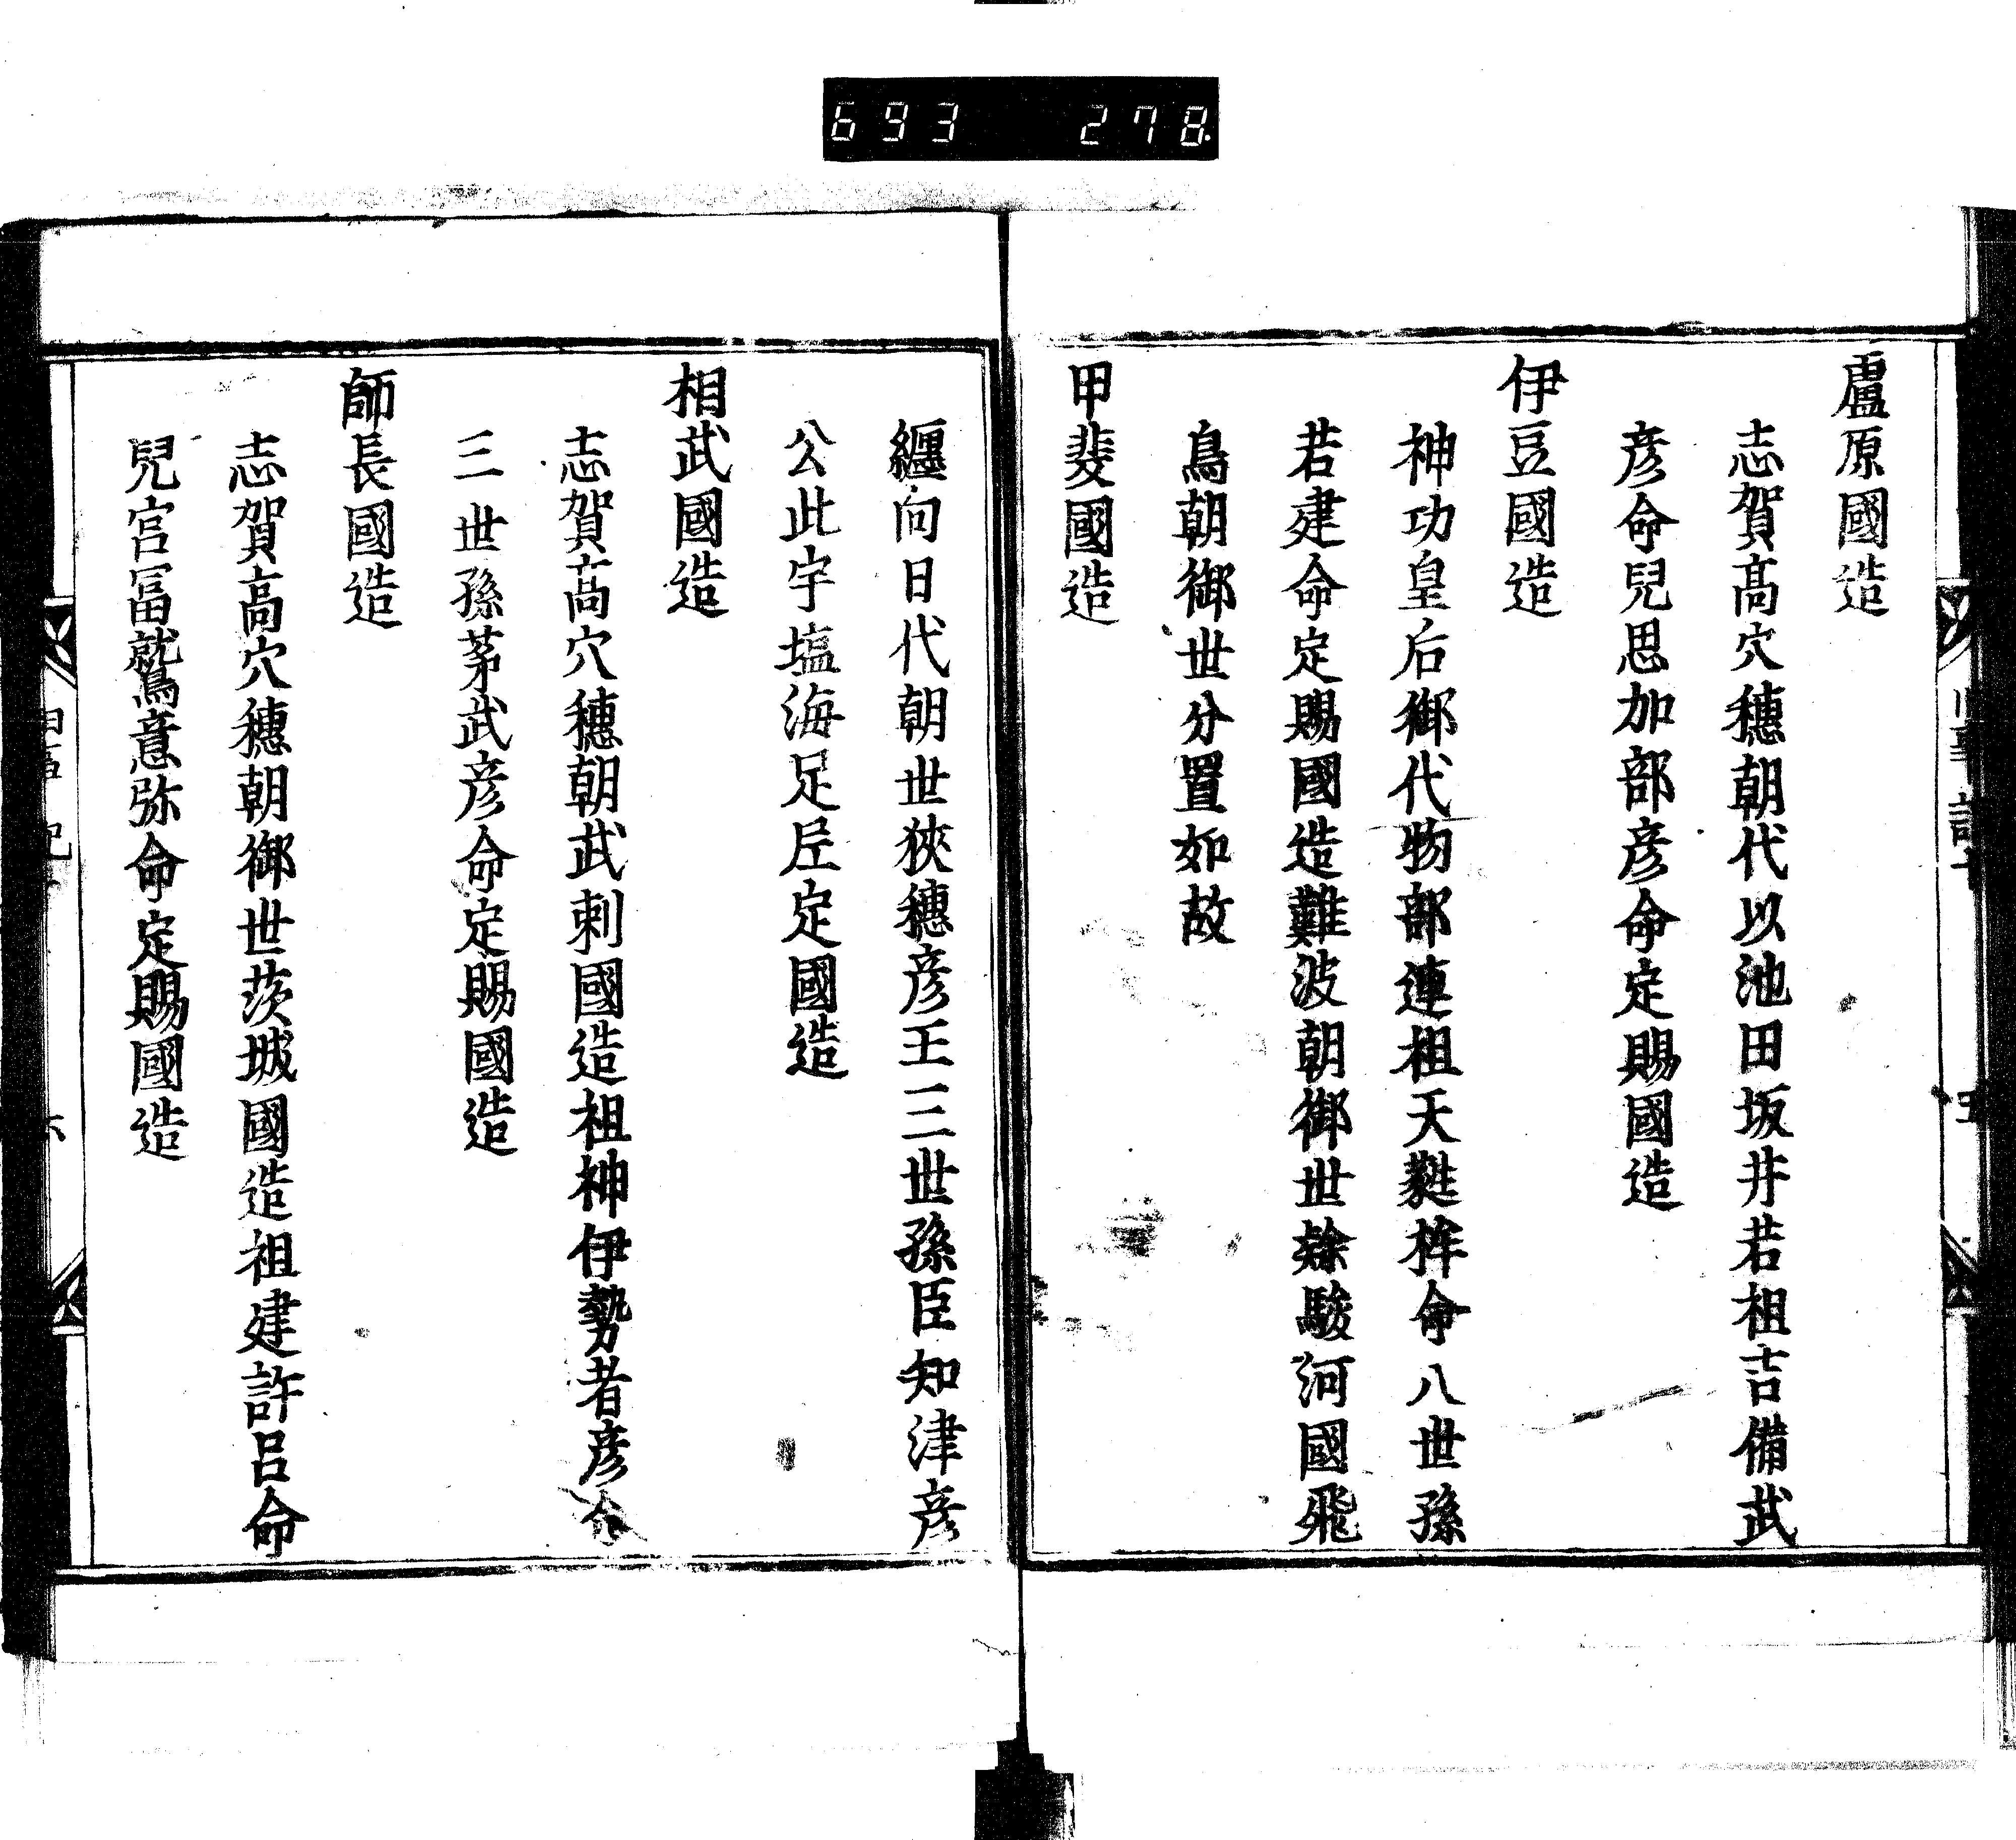 693 278
盧原國造
志賀髙穴穗朝代以池田坂井若祖吉備武
彦命兒思加部彦命定賜國造
伊豆國造
神功皇后御代物部連祖天蕤桙命八世孫
若建命定賜國造難波朝御世隸駿河國飛
鳥朝御世分置如故
甲斐國造
纒向日代朝世狹穗彦王三世孫臣知津彦
公此宇塩海足𡰱定國造
相武國造
志賀髙穴穗朝武刺國造祖神伊勢都彦命
三世孫茅武彦命定賜國造
師長國造
志賀髙穴穗朝御世茨城國造祖建許呂命
兒宮冨鷲意弥命定賜國造